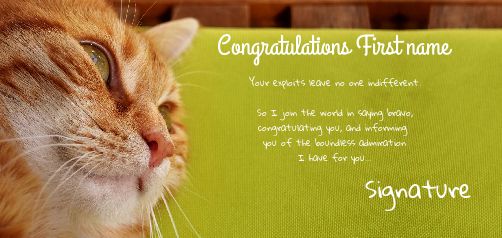 Congratulations First name
Your exploits leave no one indifferent.
So I join the world in saying bravo,
congratulating you, and informing
you of the boundless admiration
I have for you...
Signature